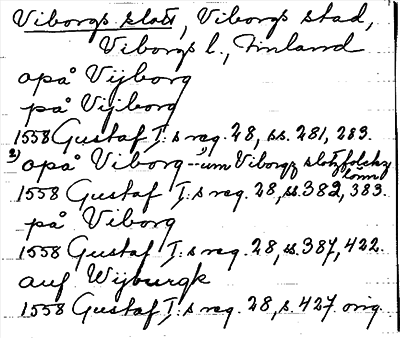 Viborgs slott, Viborgs stad,
Viborgs l., Finland
opå Vijborg
på Vijborg
1558 Gustaf I:s reg. 28, ss. 281, 283.
2) opå Viborg -- 1) um Viborgz slotzfolchz lönn
1558 Gustaf I:s reg. 28, ss. 382, 383.
på Viborg
1558 Gustaf I:s reg. 28, ss. 387, 422.
auf Wijburgk
1558 Gustaf I:s reg. 28, s. 427 orig.